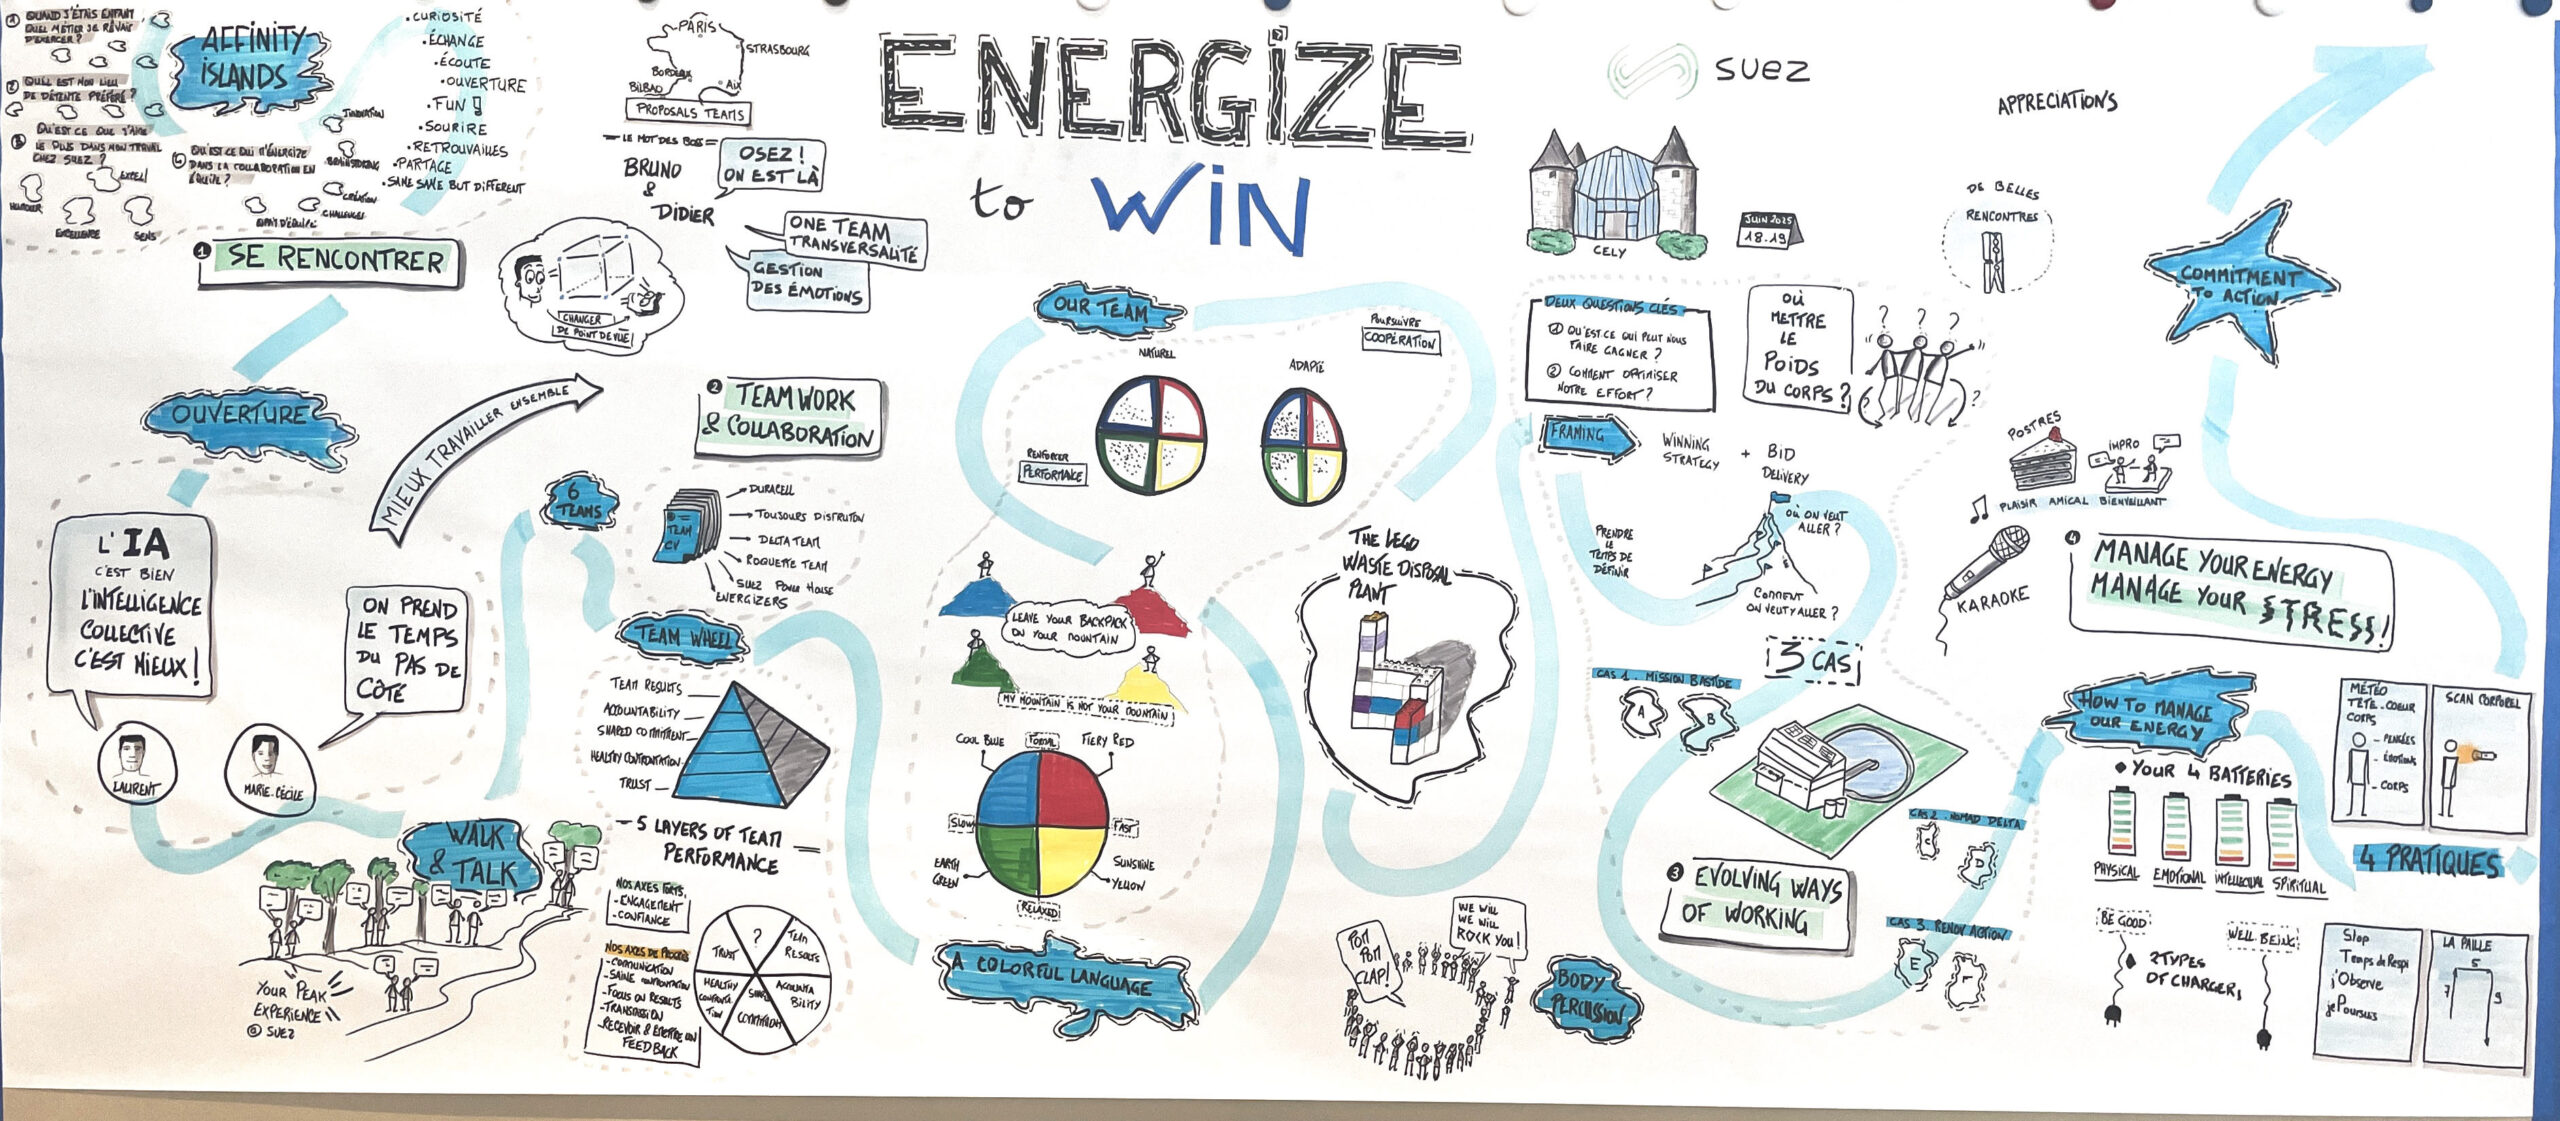 ENERGIZE
to WIN
SUEZ
CELY
JUIN 2025
18.19
AFFINITY
ISLANDS
① QUAND J'ÉTAIS ENFANT
QUEL MÉTIER JE RÊVAIS
D'EXERCER ?
② QUEL EST MON LIEU
DE DÉTENTE PRÉFÉRÉ ?
③ QU'EST CE QUE J'AIME
LE PLUS DANS MON TRAVAIL
CHEZ SUEZ ?
HUMOUR
EXCELLENCE
SENS
QU'EST CE QUI M'ÉNERGIZE
DANS LA COLLABORATION EN
ÉQUIPE ?
INNOVATION
BRAINSTORMING
CRÉATION
CHALLENGES
ESPRIT D'ÉQUIPE
• CURIOSITÉ
• ÉCHANGE
• ÉCOUTE
• OUVERTURE
• FUN !
• SOURIRE
• RETROUVAILLES
• PARTAGE
• SAME SAME BUT DIFFERENT
① SE RENCONTRER
PARIS
STRASBOURG
BORDEAUX
BILBAO
AIX
PROPOSALS TEAMS
LE MOT DES BOSS
BRUNO
&
DIDIER
OSEZ !
ON EST LÀ
ONE TEAM
TRANSVERSALITÉ
GESTION
DES ÉMOTIONS
CHANGER
DE POINT DE VUE
OUVERTURE
MIEUX TRAVAILLER ENSEMBLE
L'IA
C'EST BIEN
L'INTELLIGENCE
COLLECTIVE
C'EST MIEUX !
LAURENT
ON PREND
LE TEMPS
DU PAS DE
CÔTÉ
MARIE-CÉCILE
WALK
& TALK
YOUR PEAK
EXPERIENCE
@ SUEZ
② TEAMWORK
& COLLABORATION
6
TEAMS
TEAM
CV
DURACELL
TOUJOURS DISRUPTION
DELTA TEAM
ROQUETTE TEAM
SUEZ POWER HOUSE
ENERGIZERS
TEAM WHEEL
TEAM RESULTS
ACCOUNTABILITY
SHARED COMMITMENT
HEALTHY CONFRONTATION
TRUST
5 LAYERS OF TEAM
PERFORMANCE
NOS AXES FORTS
- ENGAGEMENT
- CONFIANCE
NOS AXES DE PROGRÈS
- COMMUNICATION
- SAINE CONFRONTATION
- FOCUS ON RESULTS
- TRANSMISSION
- RECEVOIR & EMETTRE UN
FEEDBACK
?
TEAM
RESULTS
ACCOUNTA
BILITY
SHARED
COMMITMENT
HEALTHY
CONFRONTA
TION
TRUST
OUR TEAM
NATUREL
ADAPTÉ
POURSUIVRE
COOPÉRATION
RENFORCER
PERFORMANCE
LEAVE YOUR BACKPACK
ON YOUR MOUNTAIN
MY MOUNTAIN IS NOT YOUR MOUNTAIN !
COOL BLUE
FORMAL
FIERY RED
SLOW
FAST
EARTH
GREEN
SUNSHINE
YELLOW
RELAXED
A COLORFUL LANGUAGE
THE LEGO
WASTE DISPOSAL
PLANT
POM
POM
CLAP !
WE WILL
WE WILL
ROCK YOU !
BODY
PERCUSSION
DEUX QUESTIONS CLÉS
① QU'EST CE QUI PEUT NOUS
FAIRE GAGNER ?
② COMMENT OPTIMISER
NOTRE EFFORT ?
OÙ
METTRE
LE
POIDS
DU CORPS ?
? ? ?
? ?
FRAMING
WINNING
STRATEGY
+
BID
DELIVERY
PRENDRE
LE
TEMPS DE
DÉFINIR
OÙ ON VEUT
ALLER ?
COMMENT
ON VEUT Y ALLER ?
3 CAS
CAS 1. MISSION BASTIDE
A
B
CAS 2. NOMAD DELTA
C
D
CAS 3. RENOV ACTION
E
F
③ EVOLVING WAYS
OF WORKING
APPRECIATIONS
DE BELLES
RENCONTRES
POSTRES
IMPRO
PLAISIR AMICAL BIENVEILLANT
KARAOKE
COMMITMENT
TO ACTION
④ MANAGE YOUR ENERGY
MANAGE YOUR STRESS !
HOW TO MANAGE
OUR ENERGY
• YOUR 4 BATTERIES
PHYSICAL
EMOTIONAL
INTELLECTUAL
SPIRITUAL
BE GOOD
WELL BEING
2 TYPES
OF CHARGERS
MÉTÉO
TÊTE-COEUR
CORPS
- PENSÉES
- ÉMOTIONS
- CORPS
SCAN CORPOREL
4 PRATIQUES
Stop
Temps de Respi
j'Observe
je Poursuis
LA PAILLE
5
7
9